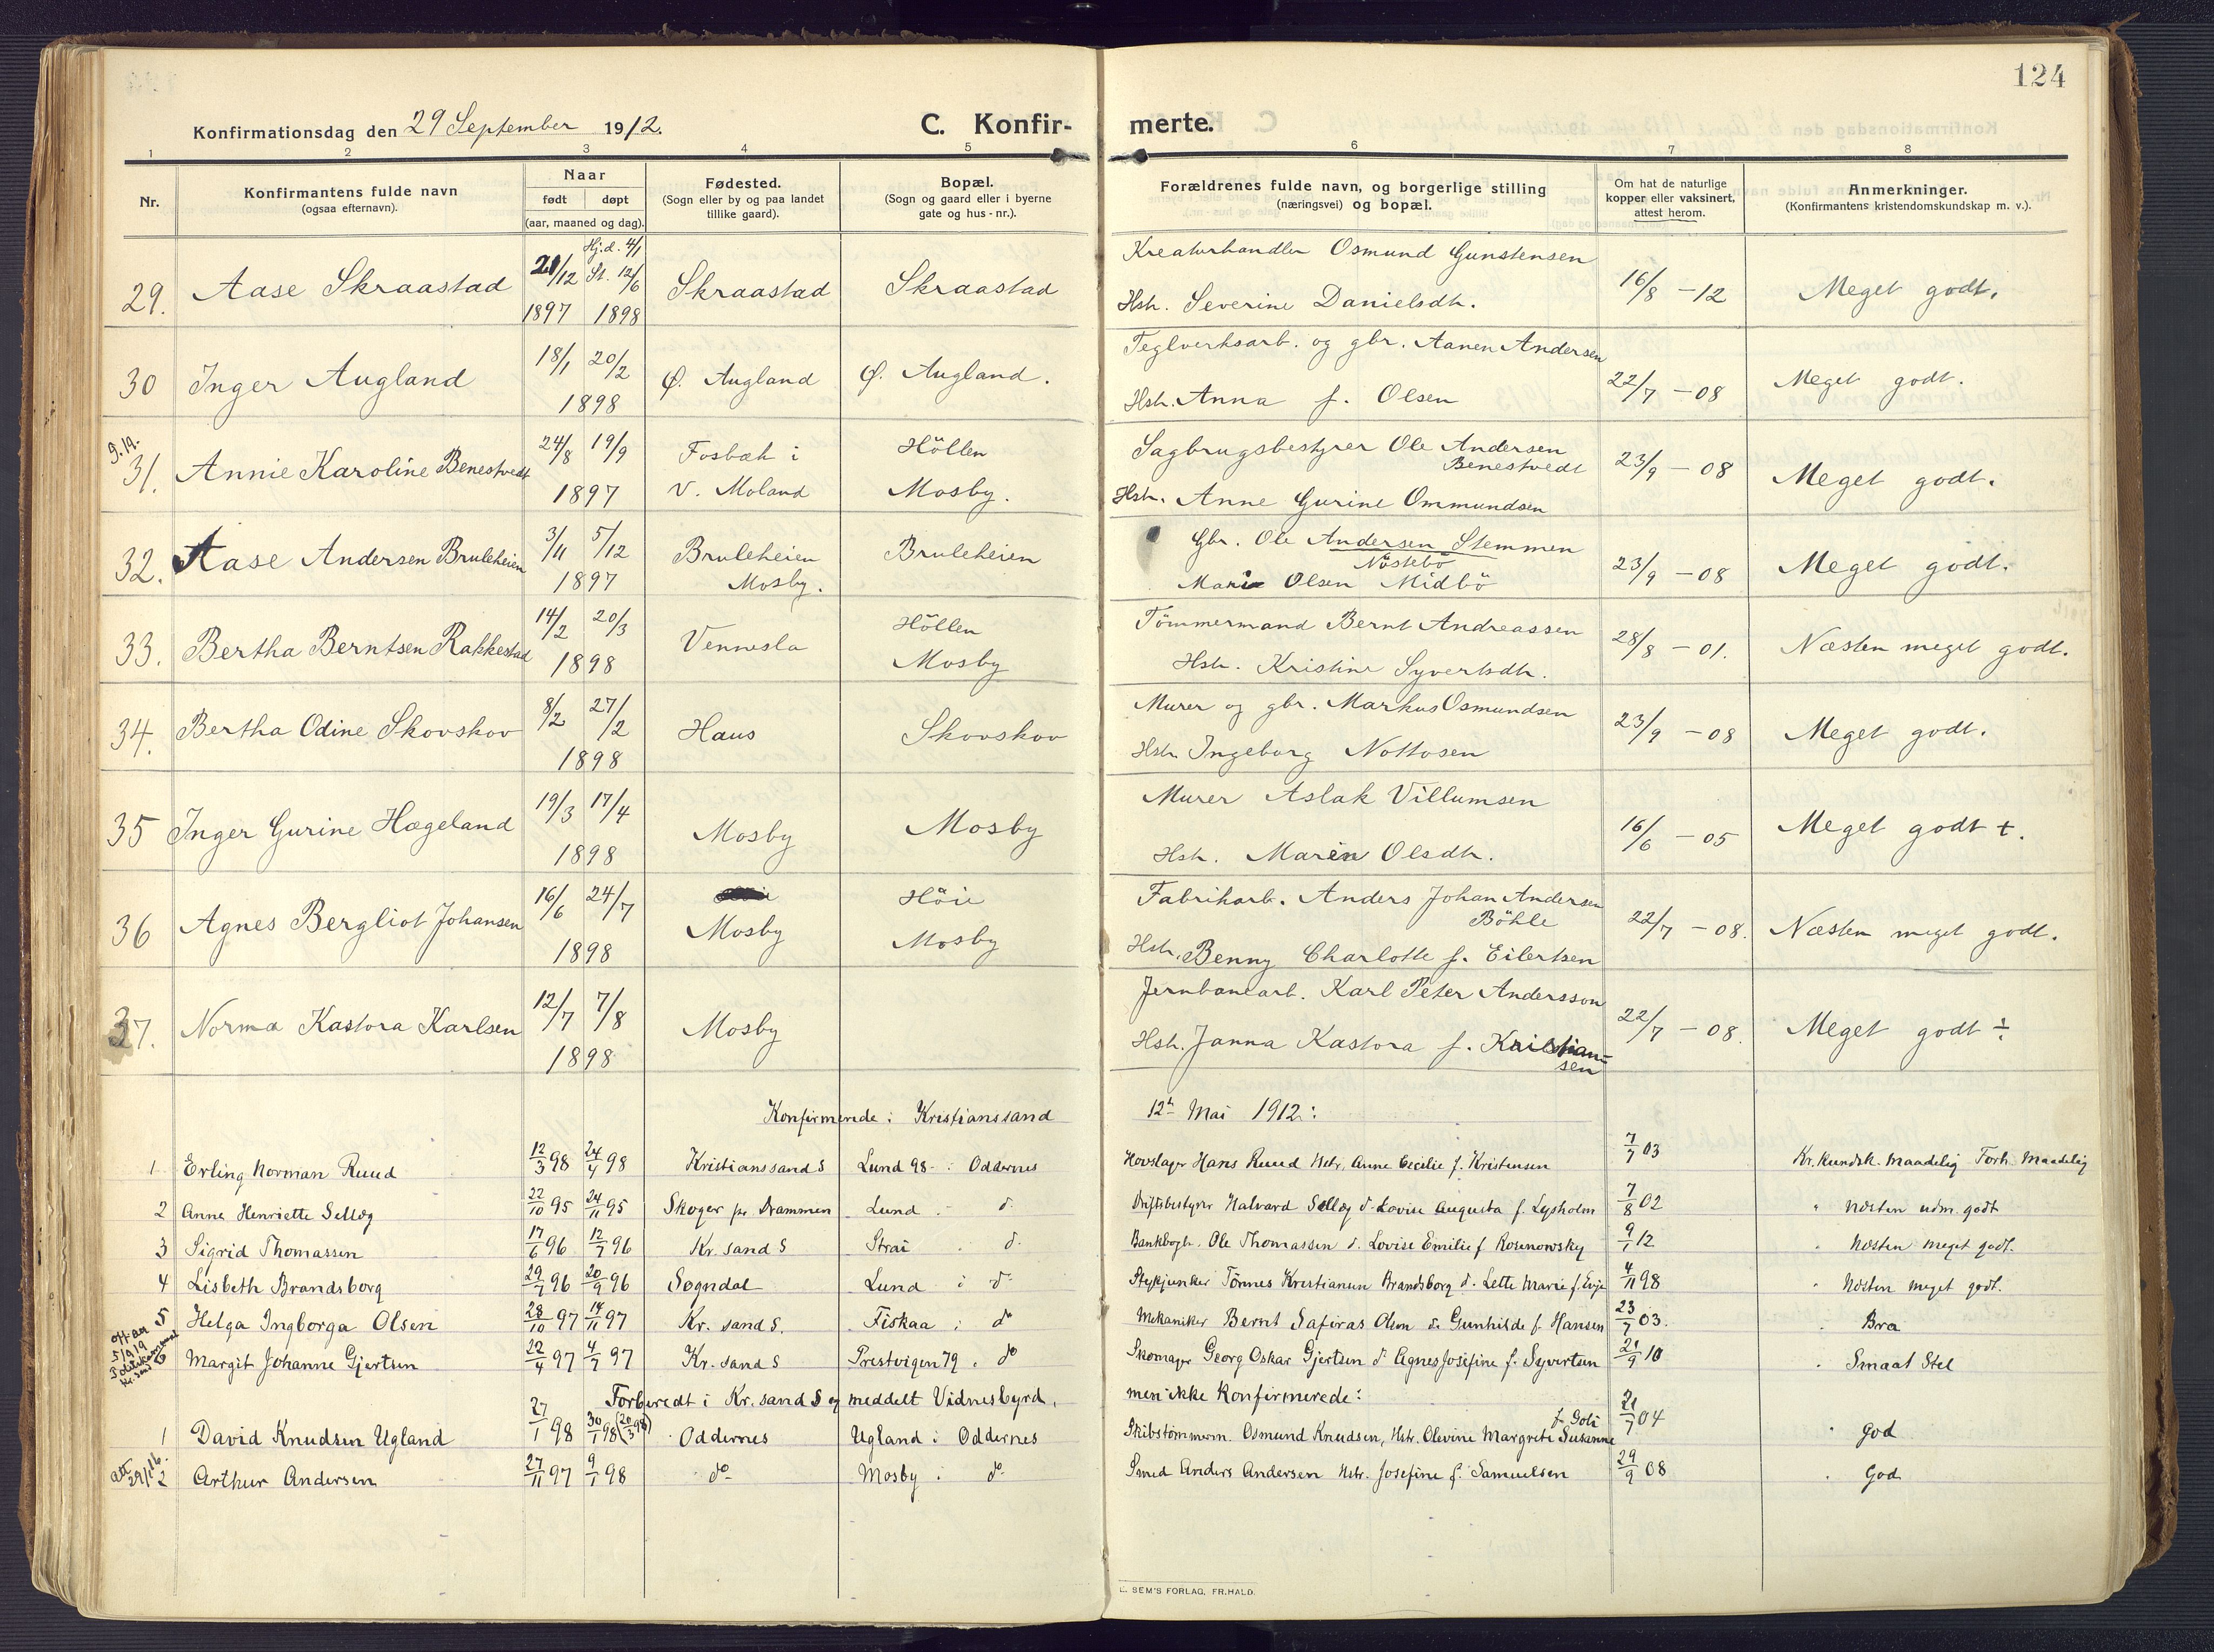 124
Konfirmationsdag den 29 September 1912.
C. Konfir-
merte.
1 2 3 4 5 6 7 8
Nr.
Konfirmantens fulde navn
(ogsaa efternavn).
Naar
født døpt
(aar, maaned og dag).
Fødested.
(Sogn eller by og paa landet
tillike gaard).
Bopæl.
(Sogn og gaard eller i byerne
gate og hus-nr.).
Forældrenes fulde navn, og borgerlige stilling
(næringsvei) og bopæl.
Om hat de naturlige
kopper eller vaksinert,
attest herom.
Anmerkninger.
(Konfirmantens kristendomskundskap m. v.).
29. Aase Skraastad 21/12 1897 Hj.d. 4/1 St. 12/6 1898 Skraastad Skraastad
Kreaturhandler Osmund Gunstensen
Hstr. Severine Danielsdtr. 16/8 - 12 Meget godt.
30 Inger Augland 18/1 20/2 1898 Ø. Augland Ø. Augland.
Teglverksarb. og gbr. Aanen Andersen
Hstr. Anna f. Olsen 22/7 - 08 Meget godt.
31. Annie Karoline Benestvedt 24/8 19/9 1897 Fosbæk i V. Moland Höllen Mosby.
Sagbrugsbestyrer Ole Andersen
Benestvedt
Hstr. Anne Gurine Ommundsen 23/9 - 08 Meget godt.
32. Aase Andersen Bruleheien 3/11 5/12 1897 Bruleheien Mosby. Bruleheien
Gbr. Ole Andersen Stemmen
Nöstebö
Marie Olsen Midbö 23/9 - 08 Meget godt.
33. Bertha Berntsen Rakkestad 14/2 20/3 1898 Vennesla Höllen Mosby
Tömmermand Bernt Andreassen
Hstr. Kristine Syvertsdtr. 28/8 - 01. Næsten meget godt.
34. Bertha Odine Skovskov 8/2 27/2 1898 Haus Skovskov
Murer og gbr. Markus Osmundsen
Hstr. Ingeborg Nottosen 23/9 - 08 Meget godt.
35 Inger Gurine Hægeland 19/3 17/4 1898 Mosby Mosby
Murer Aslak Villumsen
Hstr. Maren Olsdtr. 16/6 - 05 Meget godt +.
36 Agnes Bergliot Johansen 16/6 24/7 1898 Mosby Höie Mosby
Fabrikarb. Anders Johan Andersen
Böhle
Hstr. Benny Charlotte f. Eilertsen 22/7 - 08. Næsten meget godt.
37. Norma Kastora Karlsen 12/7 7/8 1898 Mosby
Jernbanearb. Karl Peter Andersson
Hstr. Janna Kastora f. Kristian=
sen 22/7 - 08. Meget godt ÷
Konfirmerede i Kristianssand 12te Mai 1912:
1 Erling Norman Ruud 12/3 98 24/4 98 Kristianssand S Lund 98 i Oddernes Hovslager Hans Ruud Hstr. Anne Cecilie f. Kristensen 7/7 03 Kr. kundsk. Maadelig Forh. Maadelig
2 Anne Henriette Selløg 22/10 95 24/11 95 Skoger pr Drammen Lund - do Driftsbestyrer Halvard Selløg d. Lovise Augusta f. Lysholm 7/8 02 " Næsten udm. godt
3 Sigrid Thomassen 17/6 96 12/7 96 Kr. sand S Strai - do Bankbogh. Ole Thomassen d. Lovise Emilie f. Rosenowsky 9/1 12 " Næsten meget godt.
4 Lisbeth Brandsborg 29/7 96 20/9 96 Sogndal Lund i do Stykjunker Tönnes Kristiansen Brandsborg d. Lette Marie f. Evje 4/11 98 " Næsten meget godt.
5 Helga Ingborga Olsen 28/10 97 14/11 97 Kr. sand S. Fiskaa i do Mekaniker Bernt Safiras Olsen d. Gunhilde f. Hansen 23/7 03. " Bra
6 Margit Johanne Gjertsen 22/4 97 4/7 97 Kr. sand S Prestvigen 79 i do Skomager Georg Oskar Gjertsen d. Agnes Josefine f. Syvertsen 21/9 10 " Smaat Stel
Forberedt i Kr. sand S og meddelt Vidnesbyrd, men ikke Konfirmerede:
1 David Knudsen Ugland 27/1 98 30/1 98 (20/3 98) Oddernes Ugland i Oddernes Skibstømmerm. Osmund Knudsen, Hstr. Olevine Margrete Susanne 21/7 04 " God
2 Arthur Andersen 27/11 97 9/1 98 do Mosby i do Smed Anders Andersen Hstr. Josefine f. Samuelsen 29/9 08 " God
E. SEM'S FORLAG, FR.HALD.